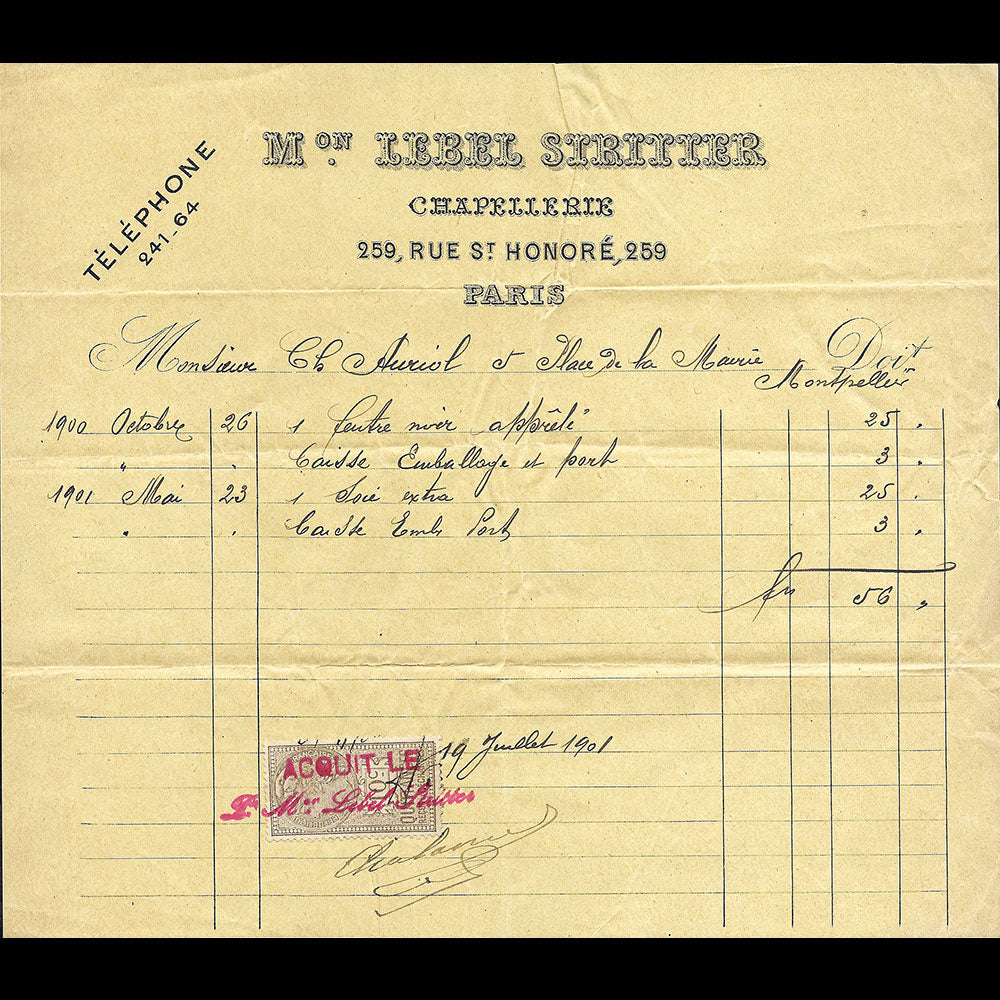 TÉLÉPHONE
241-64
Mon. LEBEL STRITTER
CHAPELLERIE
259, RUE ST HONORÉ, 259
PARIS
Monsieur Ch Auriol 5 Place de la Mairie Doit
Montpellier
1900 Octobre 26 1 feutre noir apprêté 25 "
" " Caisse Emballage et port 3 "
1901 Mai 23 1 Soie extra 25 "
" " Caisse Emb Port 3 "
frs 56 "
19 Juillet 1901
ACQUIT LE
Pr. Mon Lebel Stritter